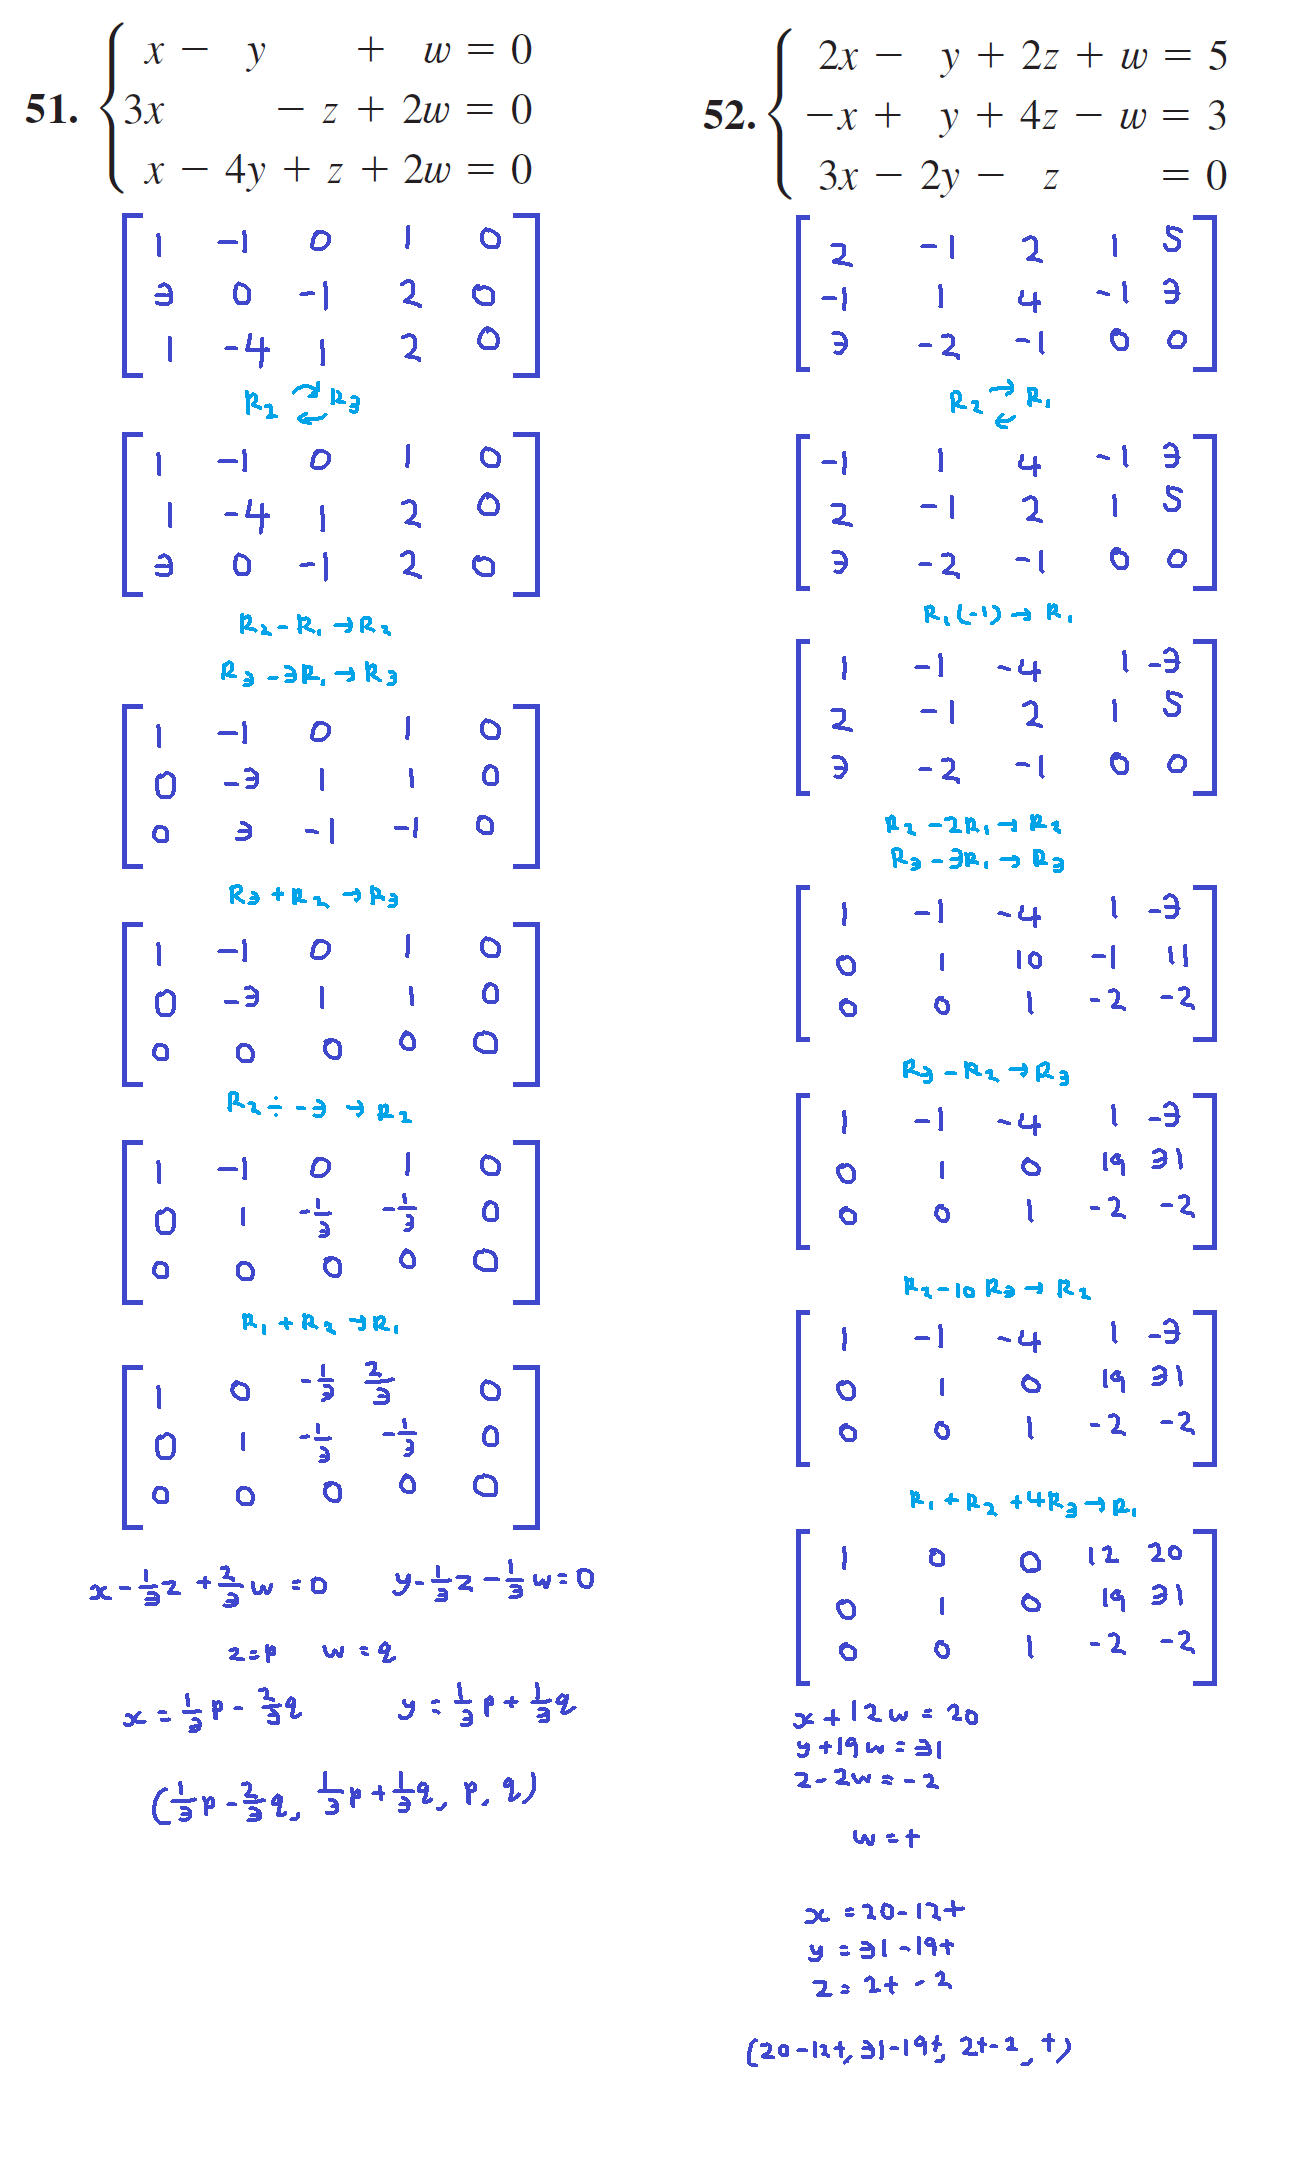 51. { x − y + w = 0
3x − z + 2w = 0
x − 4y + z + 2w = 0
[ 1 -1 0 1 0
3 0 -1 2 0
1 -4 1 2 0 ]
R₂ ⇄ R₃
[ 1 -1 0 1 0
1 -4 1 2 0
3 0 -1 2 0 ]
R₂ - R₁ → R₂
R₃ - 3R₁ → R₃
[ 1 -1 0 1 0
0 -3 1 1 0
0 3 -1 -1 0 ]
R₃ + R₂ → R₃
[ 1 -1 0 1 0
0 -3 1 1 0
0 0 0 0 0 ]
R₂ ÷ -3 → R₂
[ 1 -1 0 1 0
0 1 -1/3 -1/3 0
0 0 0 0 0 ]
R₁ + R₂ → R₁
[ 1 0 -1/3 2/3 0
0 1 -1/3 -1/3 0
0 0 0 0 0 ]
x - 1/3 z + 2/3 w = 0 y - 1/3 z - 1/3 w = 0
z = p w = q
x = 1/3 p - 2/3 q y = 1/3 p + 1/3 q
(1/3 p - 2/3 q, 1/3 p + 1/3 q, p, q)
52. { 2x − y + 2z + w = 5
−x + y + 4z − w = 3
3x − 2y − z = 0
[ 2 -1 2 1 5
-1 1 4 -1 3
3 -2 -1 0 0 ]
R₂ ⇄ R₁
[ -1 1 4 -1 3
2 -1 2 1 5
3 -2 -1 0 0 ]
R₁(-1) → R₁
[ 1 -1 -4 1 -3
2 -1 2 1 5
3 -2 -1 0 0 ]
R₂ - 2R₁ → R₂
R₃ - 3R₁ → R₃
[ 1 -1 -4 1 -3
0 1 10 -1 11
0 0 1 -2 -2 ]
R₃ - R₂ → R₃
[ 1 -1 -4 1 -3
0 1 0 19 31
0 0 1 -2 -2 ]
R₂ - 10 R₃ → R₂
[ 1 -1 -4 1 -3
0 1 0 19 31
0 0 1 -2 -2 ]
R₁ + R₂ + 4R₃ → R₁
[ 1 0 0 12 20
0 1 0 19 31
0 0 1 -2 -2 ]
x + 12w = 20
y + 19w = 31
z - 2w = -2
w = t
x = 20 - 12t
y = 31 - 19t
z = 2t - 2
(20 - 12t, 31 - 19t, 2t - 2, t)